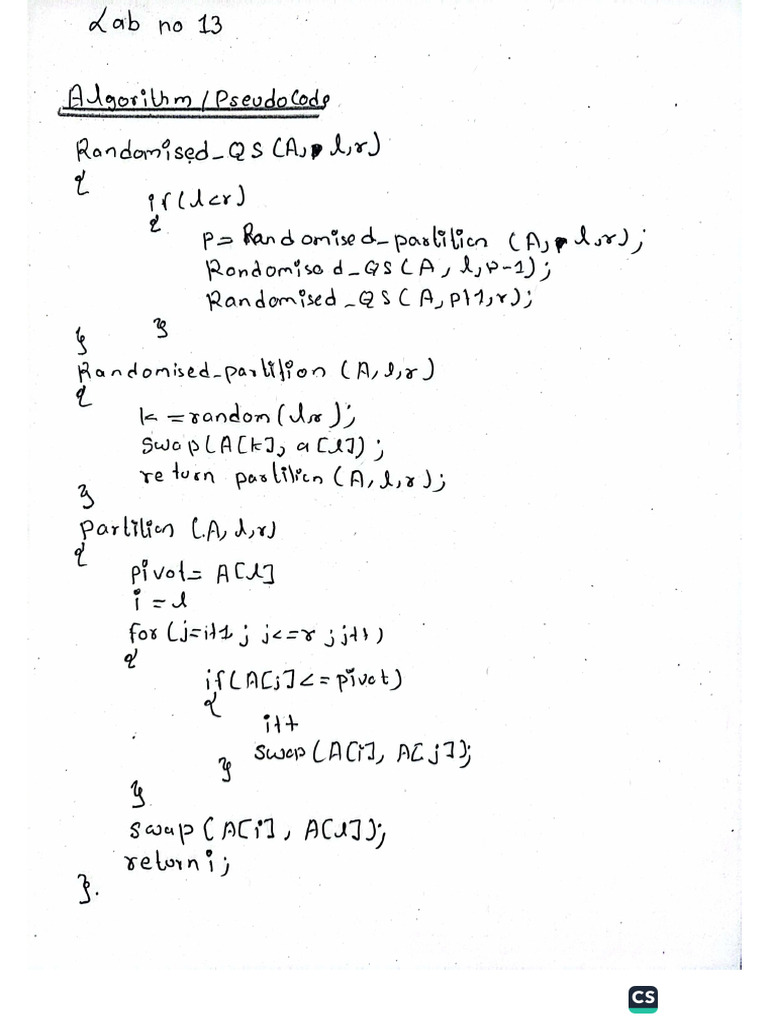 Lab no 13
Algorithm / Pseudocode
Randomised_QS (A, l,r)
{
if(l<r)
{
p= Randomised_partition (A, l,r);
Randomised_QS(A, l,p-1);
Randomised_QS(A, p+1,r);
}
}
Randomised_partition (A,l,r)
{
k =random(l,r);
Swap(A[k], a[l]);
return partition (A,l,r);
}
partition (A, l,r)
{
pivot= A[l]
i = l
for (j=i+1; j<=r ; j++)
{
if(A[j]<=pivot)
{
i++
Swap (A[i], A[j]);
}
}
swap (A[i], A[l]);
return i;
}.
CS